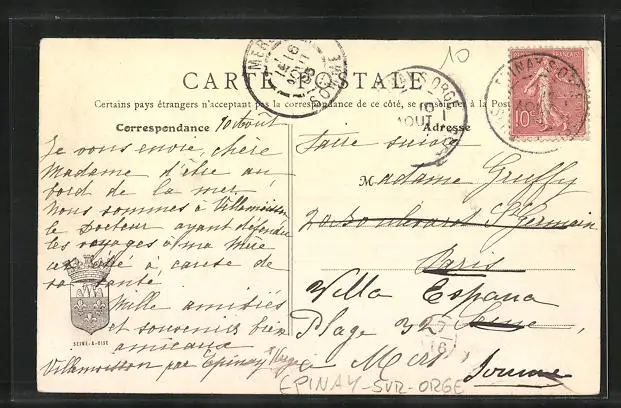 10
CARTE POSTALE
Certains pays étrangers n'acceptant pas la correspondance de ce côté, se renseigner à la Post
Correspondance
10 Août
Je vous envie, chère
Madame d'être au
bord de la mer.
Nous sommes à Villemoisson
le Docteur ayant défendu
les voyages à ma mère
cet été à cause de
sa santé
Mille amitiés
et souvenirs bien
amicaux
Villemoisson par Epinay s/Orge
SEINE-&-OISE
Adresse
faire suivre
Madame Gruffy
20 Boulevard St Germain
Paris
Seine
Villa Espana
Plage 32
à Mers
Somme
EPINAY-SUR-ORGE
EPINAY-S-O
10
AOUT
AY-S-ORGE
10
AOUT
MERS
SOMME
16
10c